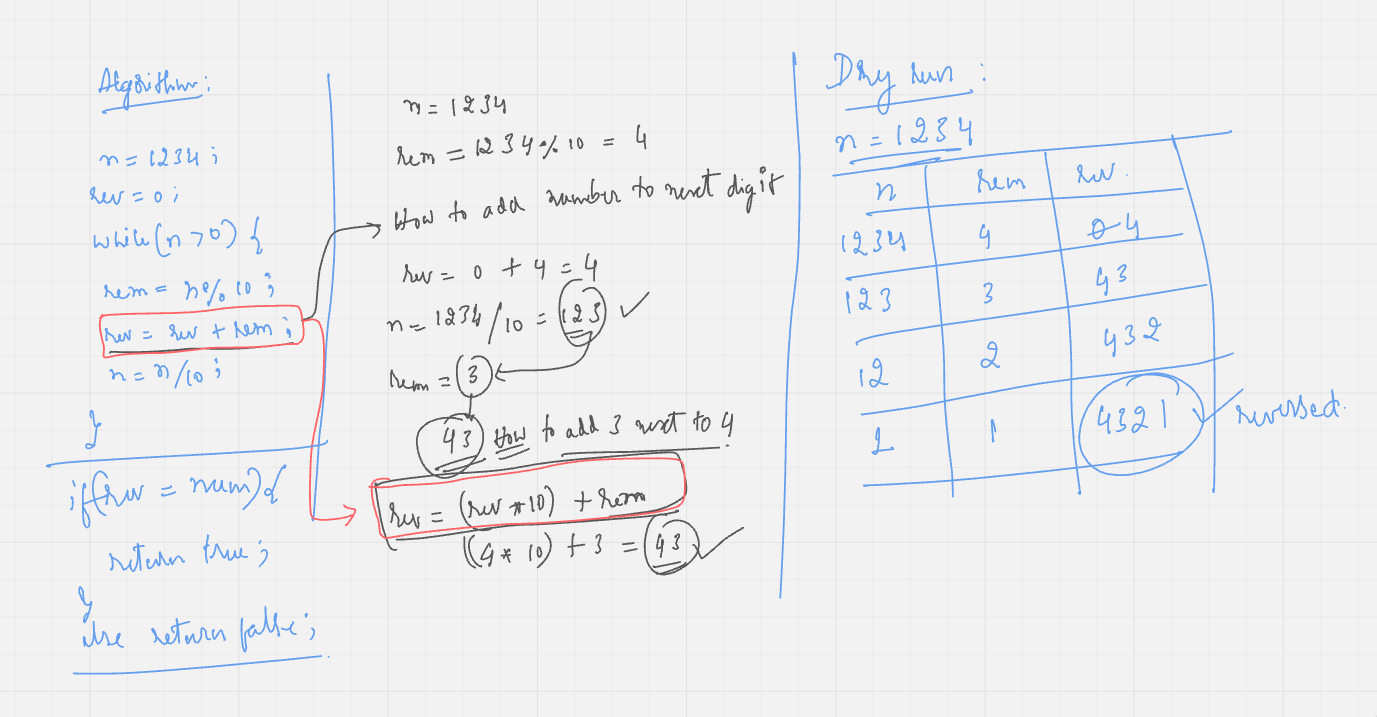 Algorithm:
n = 1234;
rev = 0;
while(n>0) {
rem = n% 10;
rev = rev + rem;
n = n/10;
}
if(rev = num){
return true;
}
else return false;
n = 1234
rem = 1234 % 10 = 4
How to add number to next digit
rev = 0 + 4 = 4
n = 1234/10 = 123
rem = 3
43 How to add 3 next to 4
rev = (rev * 10) + rem
(4 * 10) + 3 = 43
Dry run:
n = 1234
n rem rev.
1234 4 0 4
123 3 43
12 2 432
1 1 4321 reversed.